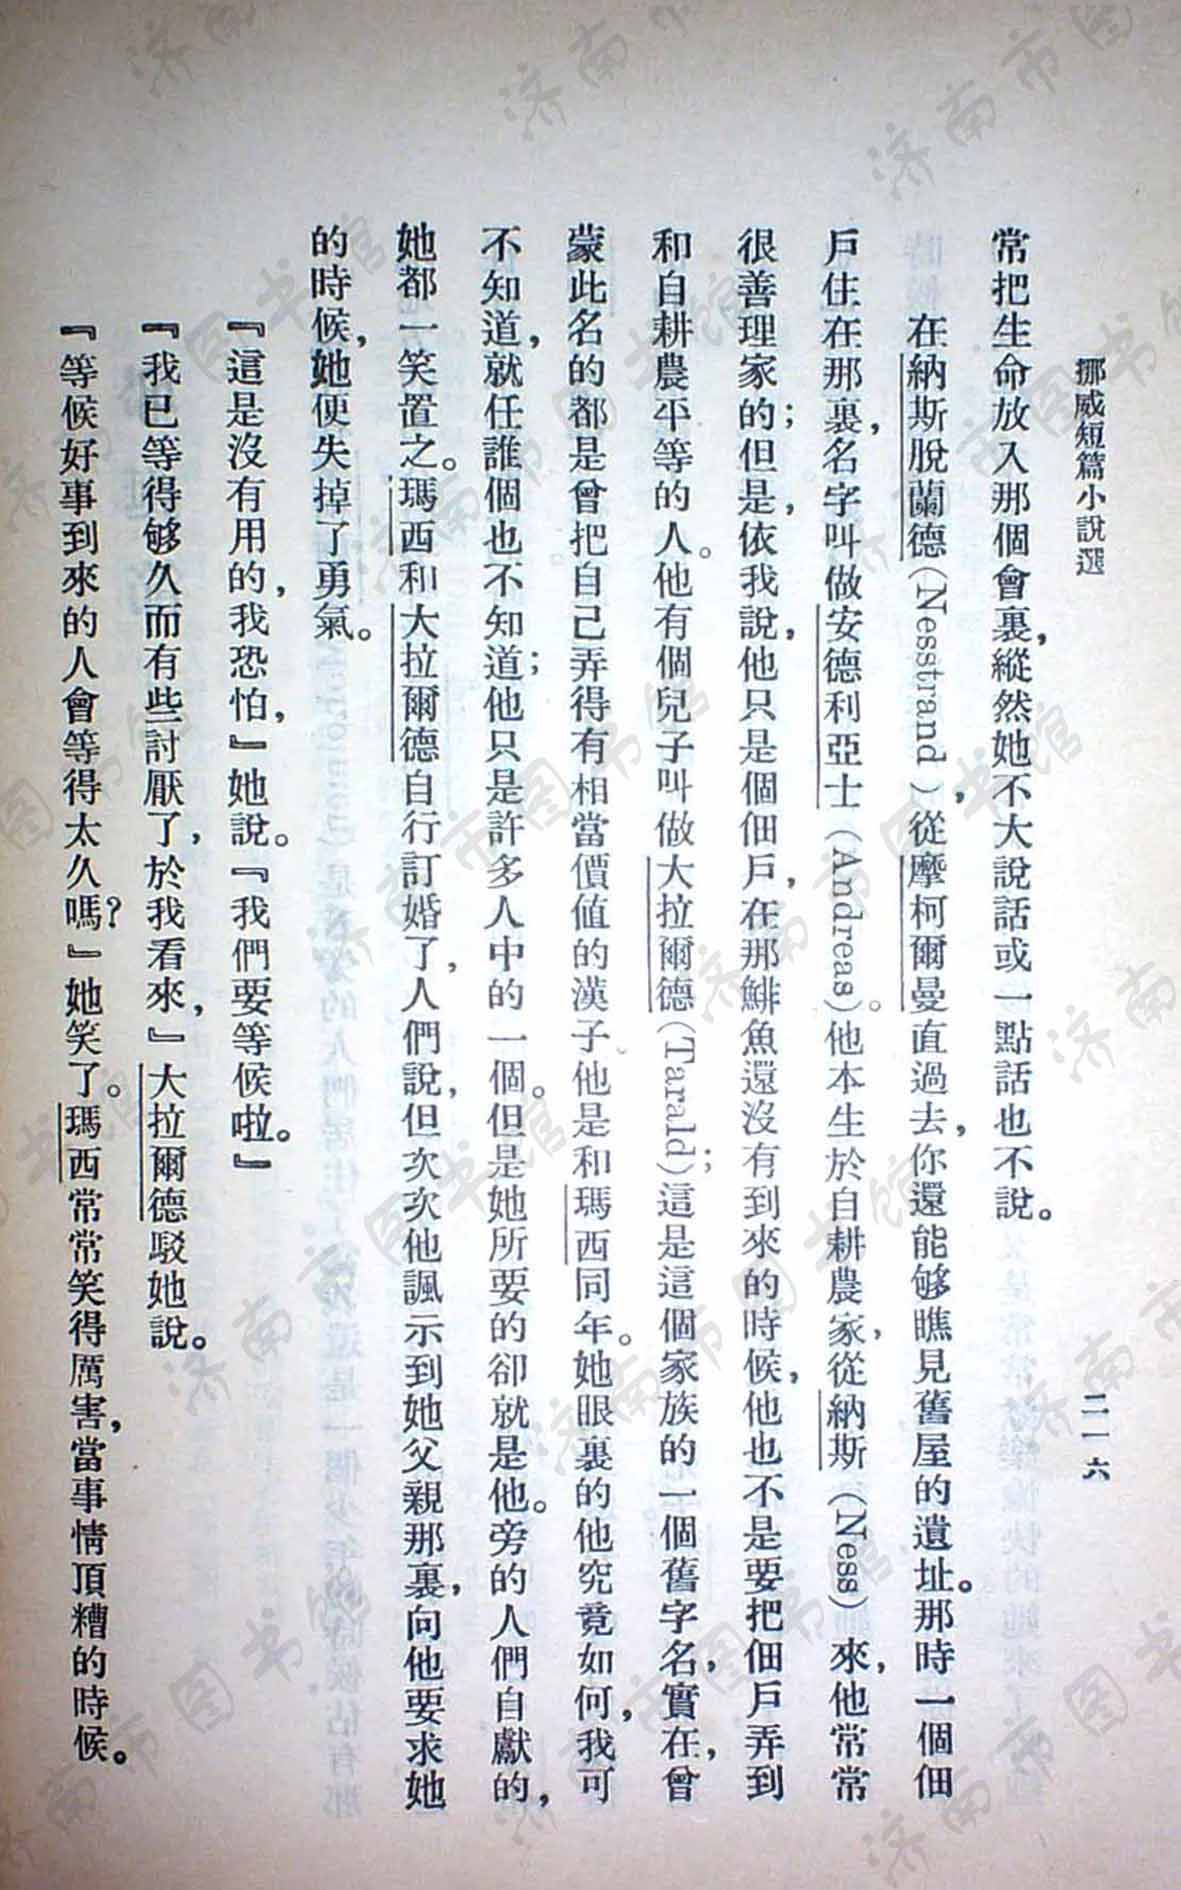 挪威短篇小說選
二一六
常把生命放入那個會裏，縱然她不大說話或一點話也不說。
在納斯脫蘭德(Nesstrand)，從摩柯爾曼直過去，你還能够瞧見舊屋的遺址。那時一個佃
戶住在那裏，名字叫做安德利亞士(Andreas)。他本生於自耕農家，從納斯(Ness)來，他常常
很善理家的；但是，依我說，他只是個佃戶，在那鯡魚還沒有到來的時候，他也不是要把佃戶弄到
和自耕農平等的人。他有個兒子叫做大拉爾德(Tarald)；這是這個家族的一個舊字名，實在，曾
蒙此名的都是曾把自己弄得有相當價値的漢子。他是和瑪西同年。她眼裏的他究竟如何，我可
不知道，就任誰個也不知道；他只是許多人中的一個。但是她所要的卻就是他。旁的人們自獻的，
她都一笑置之。瑪西和大拉爾德自行訂婚了，人們說，但次次他諷示到她父親那裏，向他要求她
的時候，她便失掉了勇氣。
『這是沒有用的，我恐怕，』她說。『我們要等候啦。』
『我已等得够久而有些討厭了，於我看來，』大拉爾德駁她說。
『等候好事到來的人會等得太久嗎？』她笑了。瑪西常常笑得厲害，當事情頂糟的時候。
济南市图书馆